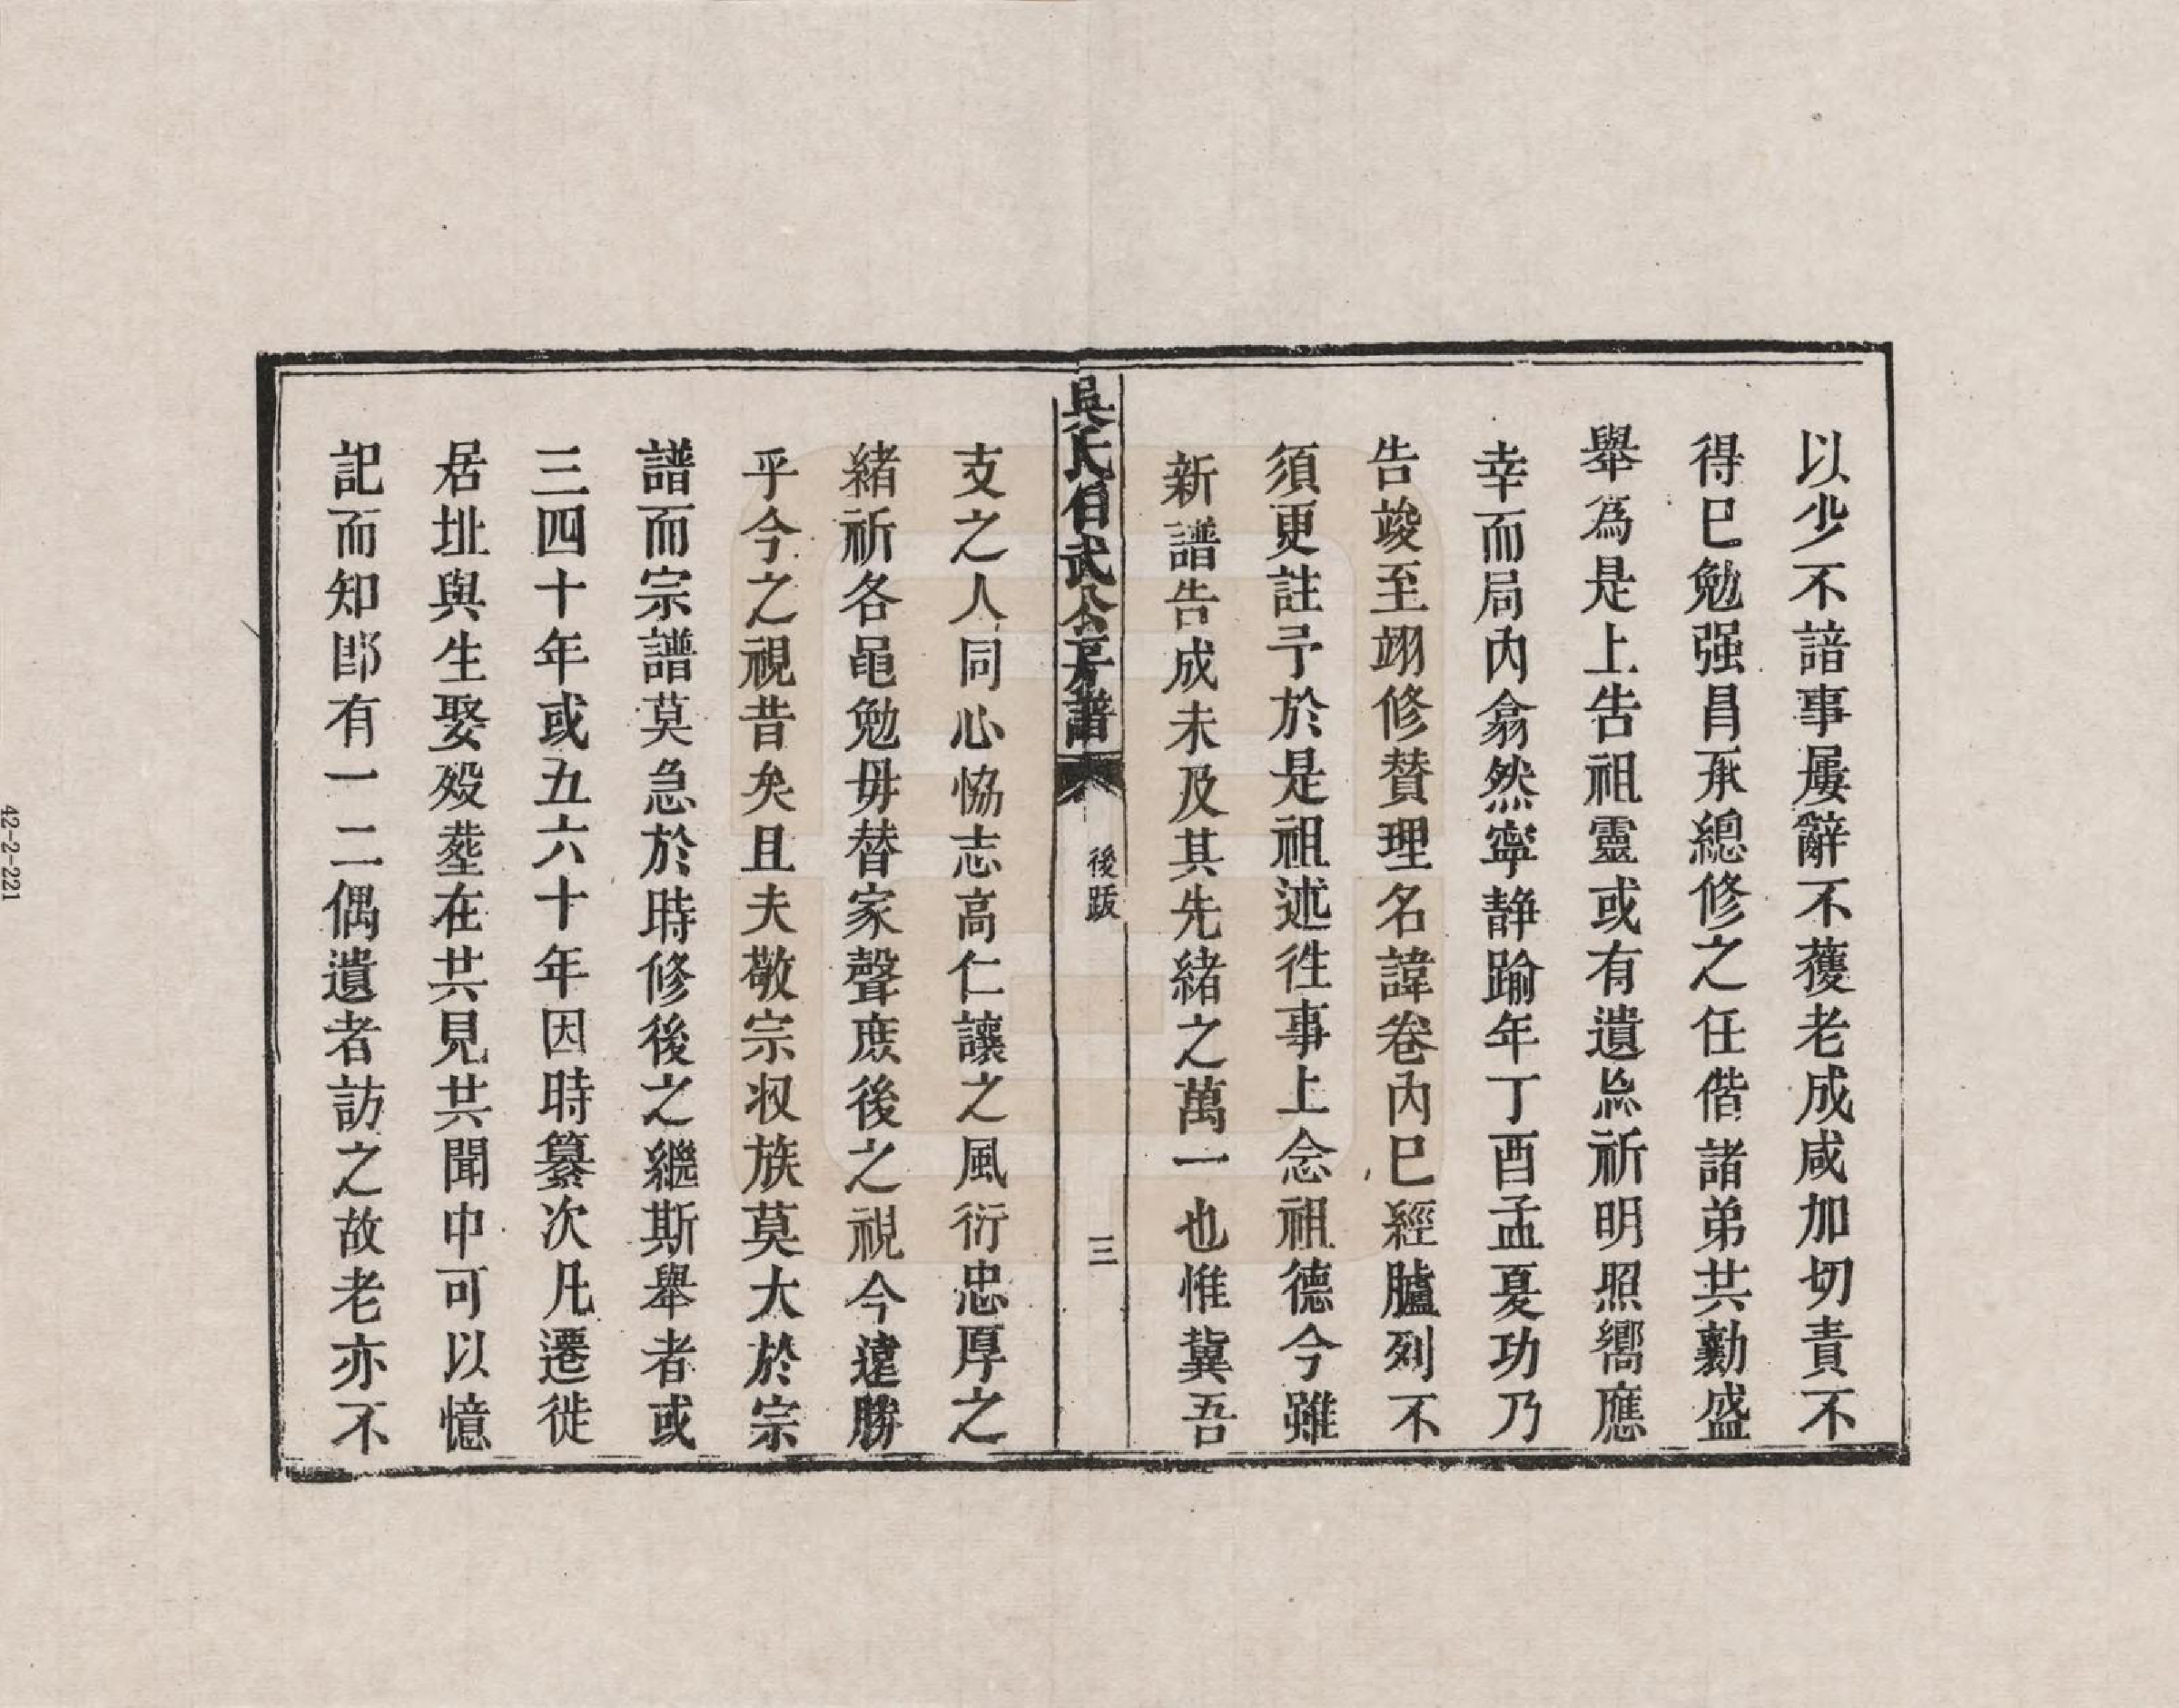 以少不諳事屢辭不獲老成咸加切責不
得已勉强肩承總修之任偕諸弟共勷盛
舉爲是上告祖靈或有遺烝祈明照嚮應
幸而局內翕然寧靜踰年丁酉孟夏功乃
告竣至翊修贊理名諱卷內已經臚列不
須更註予於是祖述徃事上念祖德今雖
新譜告成未及其先緒之萬一也惟冀吾
吳氏伯武公房譜
後跋
三
支之人同心恊志高仁讓之風衍忠厚之
緒祈各黽勉毋替家聲庶後之視今遠勝
乎今之視昔矣且夫敬宗收族莫大於宗
譜而宗譜莫急於時修後之繼斯舉者或
三四十年或五六十年因時纂次凡遷徙
居址與生娶殁塟在共見共聞中可以憶
記而知卽有一二偶遺者訪之故老亦不
42-2-221